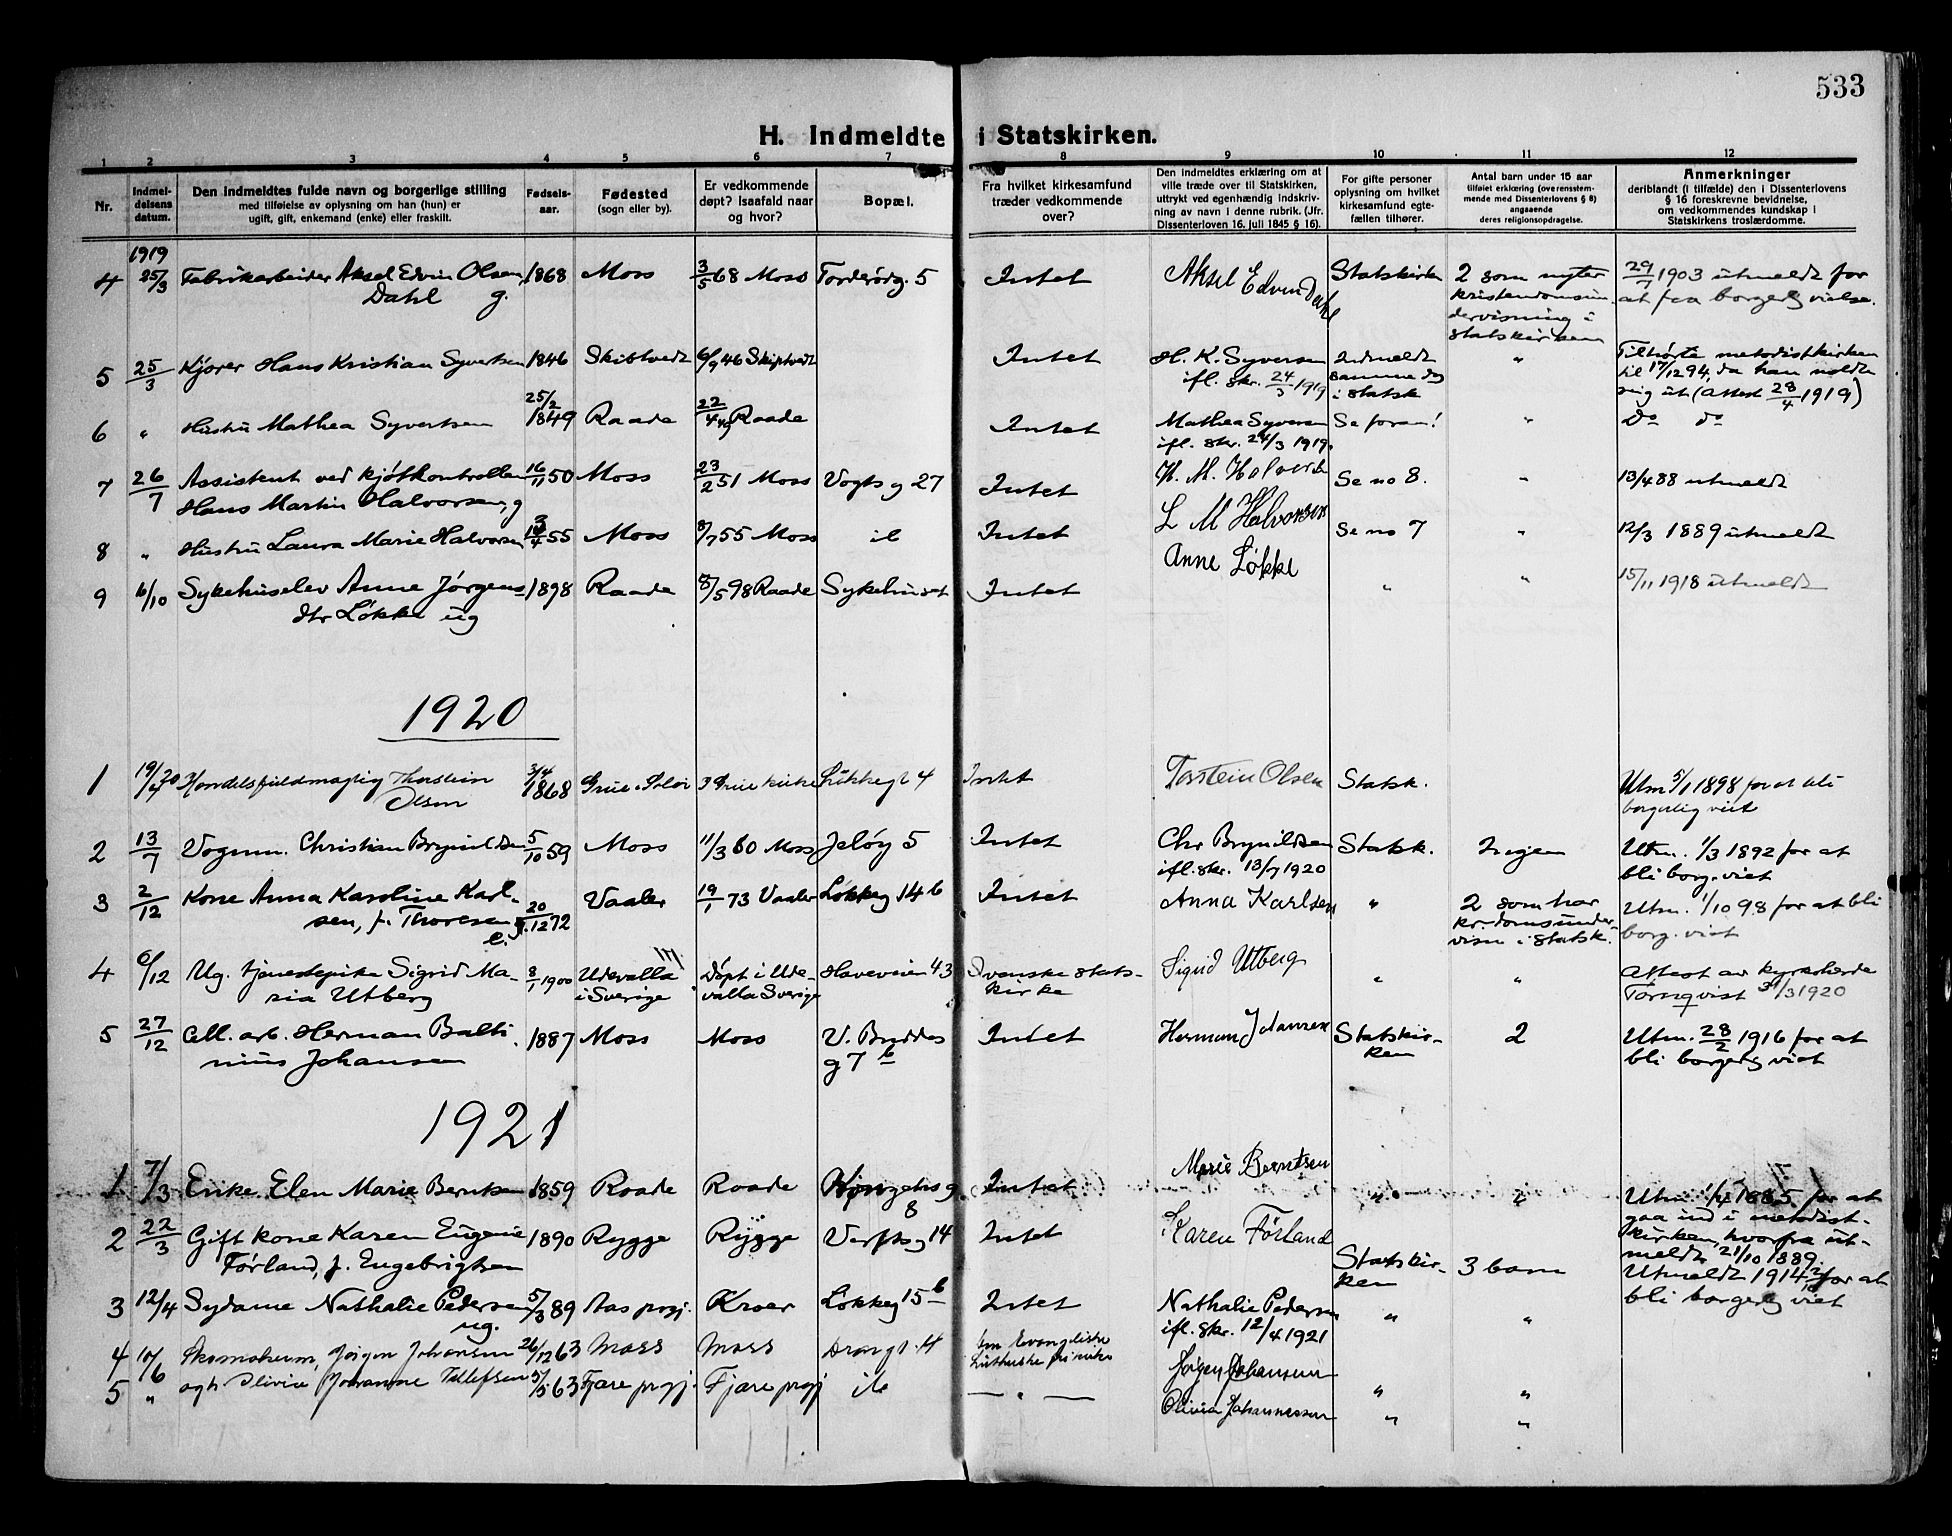 533
H. Indmeldte i Statskirken.
1 2 3 4 5 6 7 8 9 10 11 12
Nr.
Indmel-
delsens
datum.
Den indmeldtes fulde navn og borgerlige stilling
med tilføielse av oplysning om han (hun) er
ugift, gift, enkemand (enke) eller fraskilt.
Fødsels-
aar.
Fødested
(sogn eller by).
Er vedkommende
døpt? Isaafald naar
og hvor?
Bopæl.
Fra hvilket kirkesamfund
træder vedkommende
over?
Den indmeldtes erklæring om at
ville træde over til Statskirken,
uttrykt ved egenhændig indskriv-
ning av navn i denne rubrik. (Jfr.
Dissenterloven 16. juli 1845 § 16).
For gifte personer
oplysning om hvilket
kirkesamfund egte-
fællen tilhører.
Antal barn under 15 aar
tilføiet erklæring (overensstem-
mende med Dissenterlovens § 8)
angaaende
deres religionsopdragelse.
Anmerkninger
deriblandt (i tilfælde) den i Dissenterlovens
§ 16 foreskrevne bevidnelse,
om vedkommendes kundskap i
Statskirkens troslærdomme.
1919
4 25/3 Fabrikarbeider Aksel Edvin Olsen 1868 Moss 3/5 68 Moss Torderødg. 5 Intet Aksel Edvin Dahl Statskirken 2 som nyter 29/7 1903 utmeldt for
Dahl g. kristendomsun- at faa borgerlig vielse.
dervisning i
statskirken
5 25/3 Kjører Hans Kristian Syvertsen 1846 Skibtvedt 6/9 46 Skiptvedt Intet H. K. Syversen Indmeldt " Tilhørte metodistkirken
ifl. skr. 24/3 1919 samme dag til 17/12 94, da han meldte
i statsk sig ut (Attest 28/4 1919)
6 " Hustru Mathea Syvertsen 25/2 1849 Raade 22/4 49 Raade Intet Mathea Syversen Se foran! " Do do
ifl. skr. 24/3 1919.
7 26/7 Assistent ved kjøtkontrollen 16/11 50 Moss 23/2 51 Moss Vogts g 27 Intet H. M. Halvorsen Se no 8. " 13/4 88 utmeldt
Hans Martin Halvorsen, g
8 " Hustru Laura Marie Halvorsen 55 Moss 8/7 55 Moss il Intet L M Halvorsen Se no 7 " 12/3 1889 utmeldt
9 6/10 Sykehuselev Anne Jørgens- 1898 Raade 8/5 98 Raade Sykehuset Intet Anne Løkke " " 15/11 1918 utmeldt
dtr Løkke ug
1920
1 Handelsfuldmægtig Thorstein 3/4 1868 Grue, Solør Grue kirke Løkkegt 4 Intet Torstein Olsen Statsk. Utm 5/1 1898 for at bli
Olsen borgerlig viet
2 13/7 Vognm. Christian Brynildsen 5/10 59 Moss 11/3 60 Moss Jeløy 5 Intet Chr Brynildsen Statsk. Ingen Utm. 1/3 1892 for at
ifl. skr. 13/7 1920 bli borg. viet
3 2/12 Kone Anna Karoline Karl- 20/12 72 Vaaler 19/1 73 Vaaler Løkkeg 14 b Intet Anna Karlsen " 2 som har Utm. 1/10 98 for at bli
sen, f. Thoresen g. kr.domsunder- borg. viet
visn i statsk.
4 6/12 Ug. tjenestepike Sigrid Ma- 8/1 1900 Udevalla Døpt i Ude- Haveveien 43 Svenske stats- Sigrid Utberg " " Attest av kyrkoherde
ria Utberg i Sverige valla Sverige kirke Tornqvist 31/3 1920
5 27/12 All. arb. Herman Balti- 1887 Moss Moss V. Breddes Intet Herman Johansen Statskir- 2 Utm. 28/2 1916 for at
nius Johansen g 7 b ken bli borgerlig viet
1921
1 7/3 Enke Elen Marie Berntsen 1859 Raade Raade Kongens g Intet Marie Berntsen " " Utm. 1/4 1885 for at
8 gaa ind i metodist-
kirken, hvorfra ut-
meldt 21/10 1889.
2 22/3 Gift kone Karen Eugenie 1890 Rygge Rygge Verfts g 14 Intet Karen Førland Statskir- 3 barn Utmeldt 1914 for at
Førland, f. Engebrigtsen ken bli borgerlig viet
3 12/4 Sydame Nathalie Pedersen 5/3 89 Aas prgj. Kroer Løkkeg 15 b Intet Nathalie Pedersen " "
ug. ifl. skr. 12/4 1921
4 10/6 Skomakerm, Jørgen Johansen 26/12 63 Moss Moss Drongt. 4 Den Evangeliske Jørgen Johansen " "
Lutherske frikirke
5 " ogh. Olivia Johanne Tellefsen 63 Fjære prgj. Fjære prgj il — " — Olivia Johannessen " "